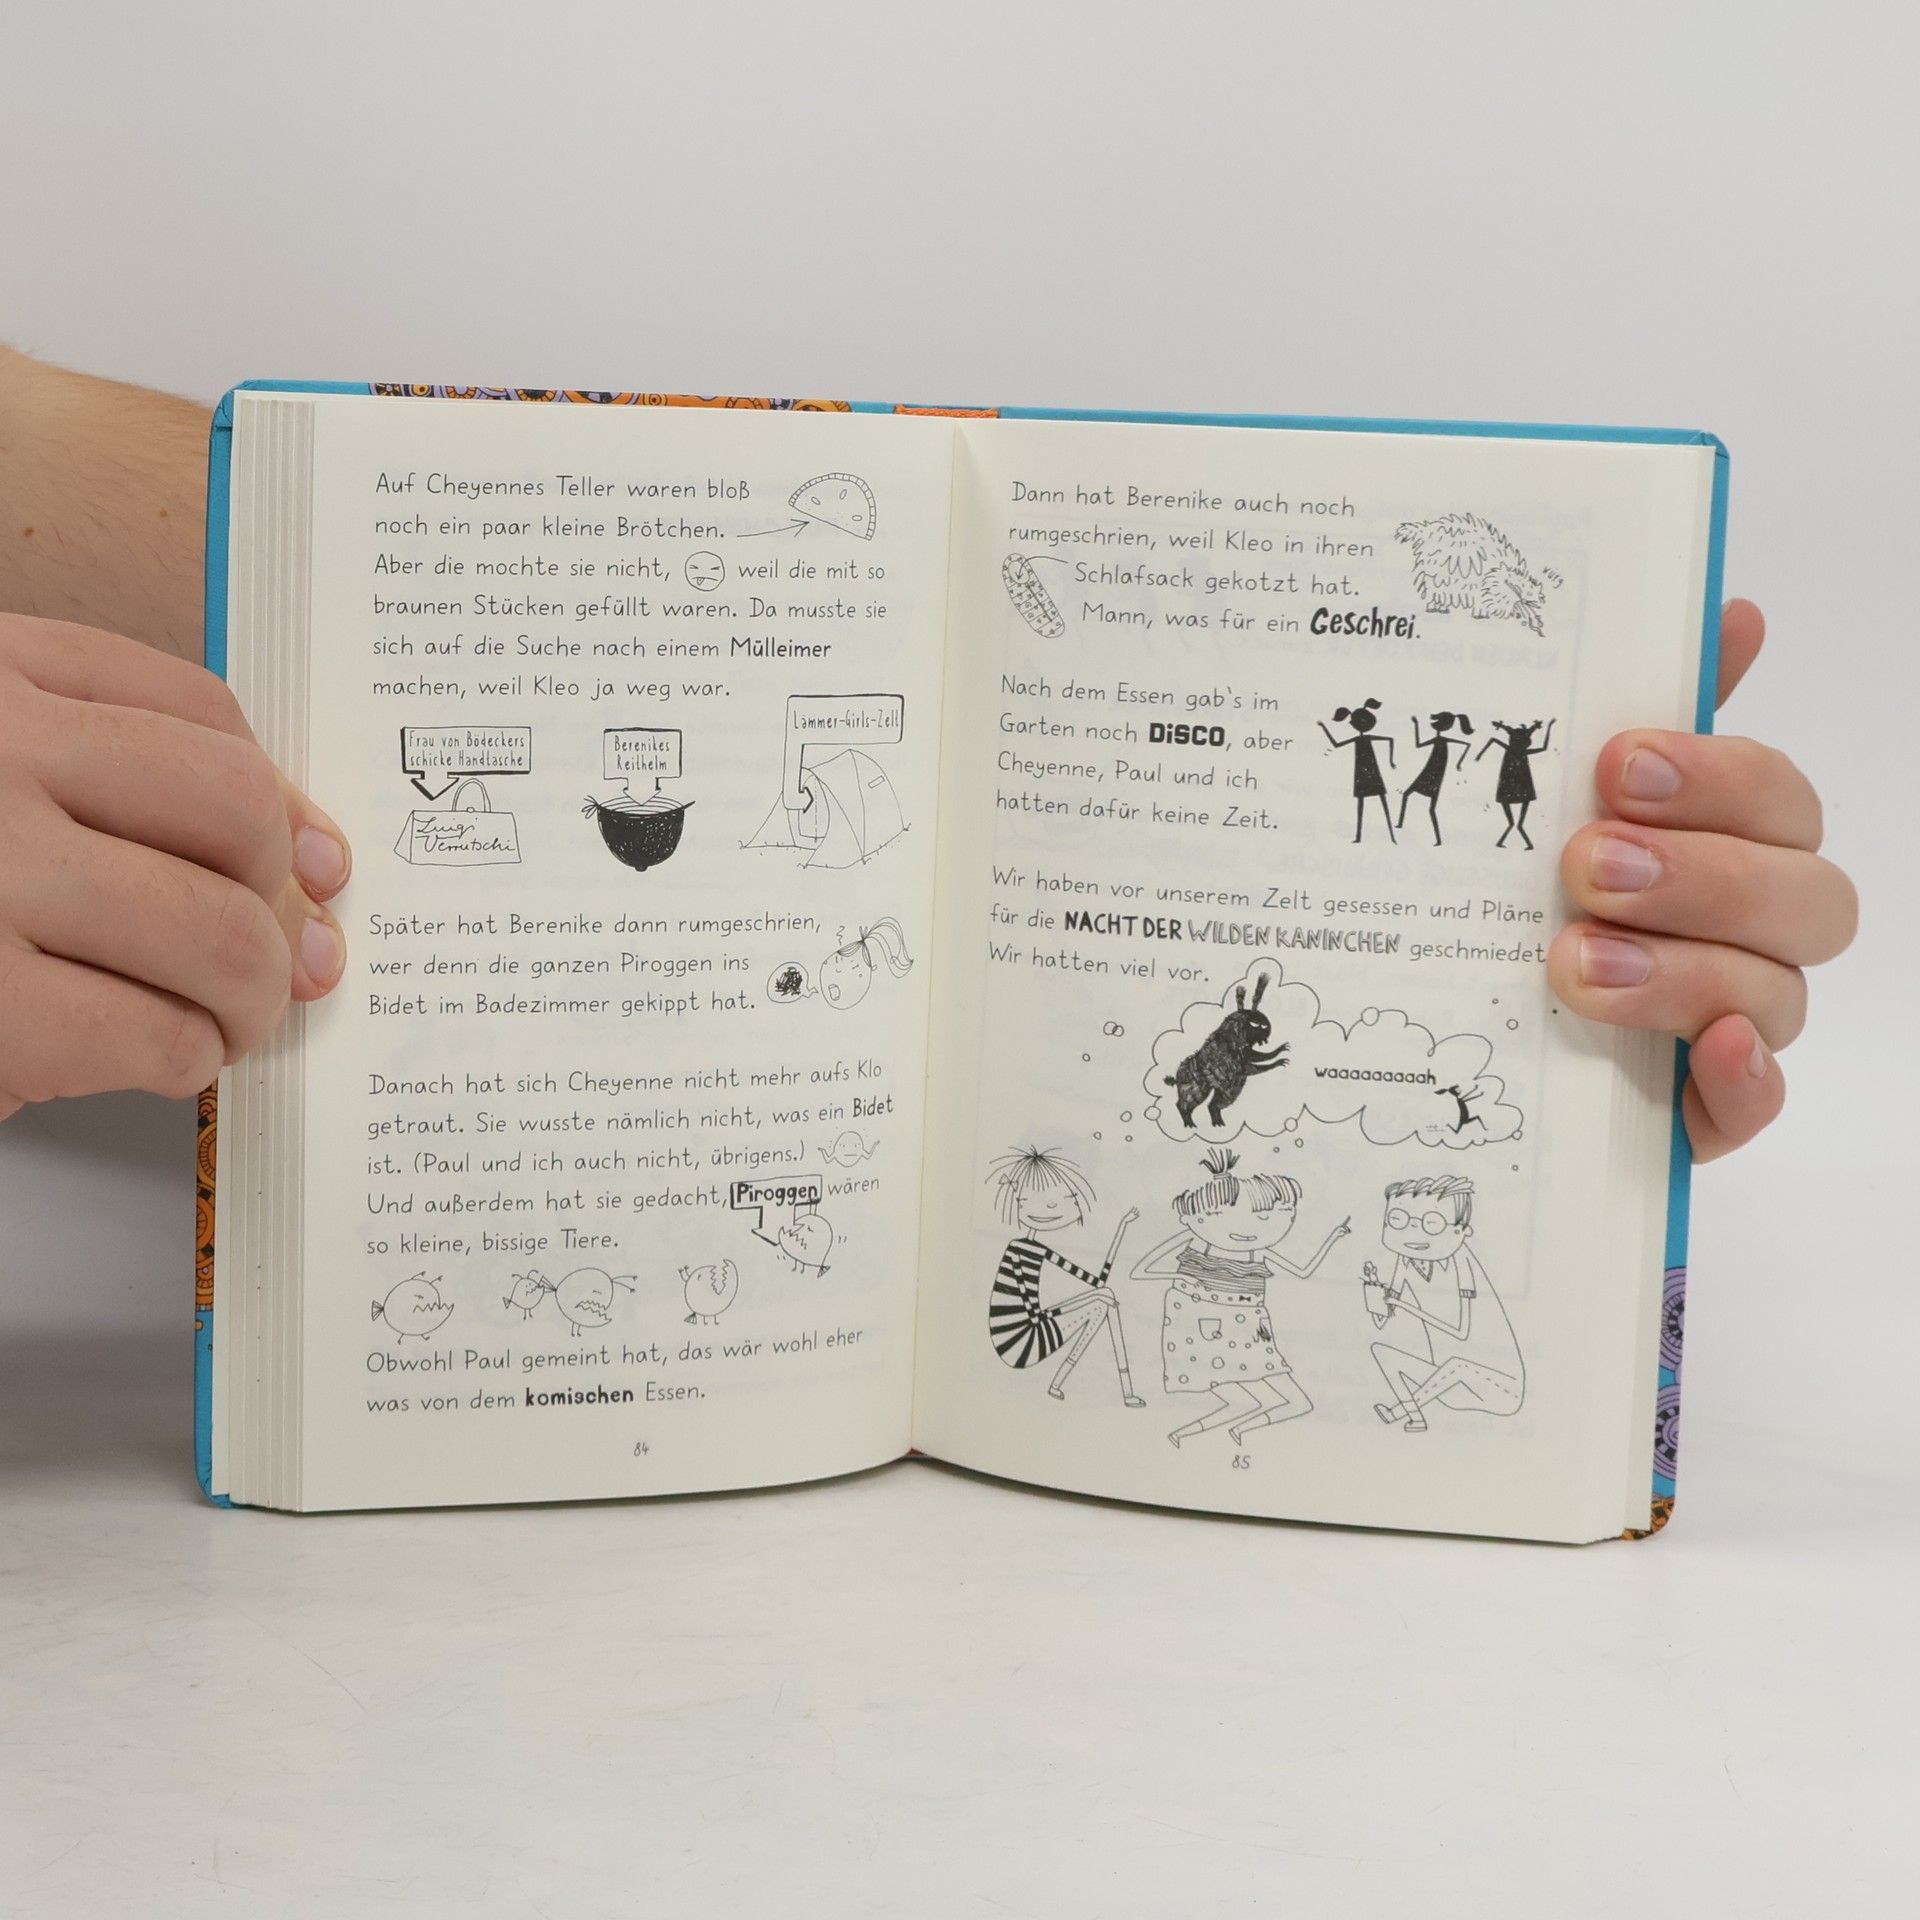 Auf Cheyennes Teller waren bloß
noch ein paar kleine Brötchen.
Aber die mochte sie nicht, weil die mit so
braunen Stücken gefüllt waren. Da musste sie
sich auf die Suche nach einem Mülleimer
machen, weil Kleo ja weg war.
Frau von Bödeckers
schicke Handtasche
Luigi
Verrutschi
Berenikes
Reithelm
Lämmer-Girls-Zelt
Später hat Berenike dann rumgeschrien,
wer denn die ganzen Piroggen ins
Bidet im Badezimmer gekippt hat.
Danach hat sich Cheyenne nicht mehr aufs Klo
getraut. Sie wusste nämlich nicht, was ein Bidet
ist. (Paul und ich auch nicht, übrigens.)
Und außerdem hat sie gedacht, Piroggen wären
so kleine, bissige Tiere.
Obwohl Paul gemeint hat, das wär wohl eher
was von dem komischen Essen.
84
Dann hat Berenike auch noch
rumgeschrien, weil Kleo in ihren
Schlafsack gekotzt hat.
Mann, was für ein Geschrei.
würg
Nach dem Essen gab's im
Garten noch DiSCO, aber
Cheyenne, Paul und ich
hatten dafür keine Zeit.
Wir haben vor unserem Zelt gesessen und Pläne
für die NACHT DER WILDEN KANINCHEN geschmiedet
Wir hatten viel vor.
waaaaaaaaah
85